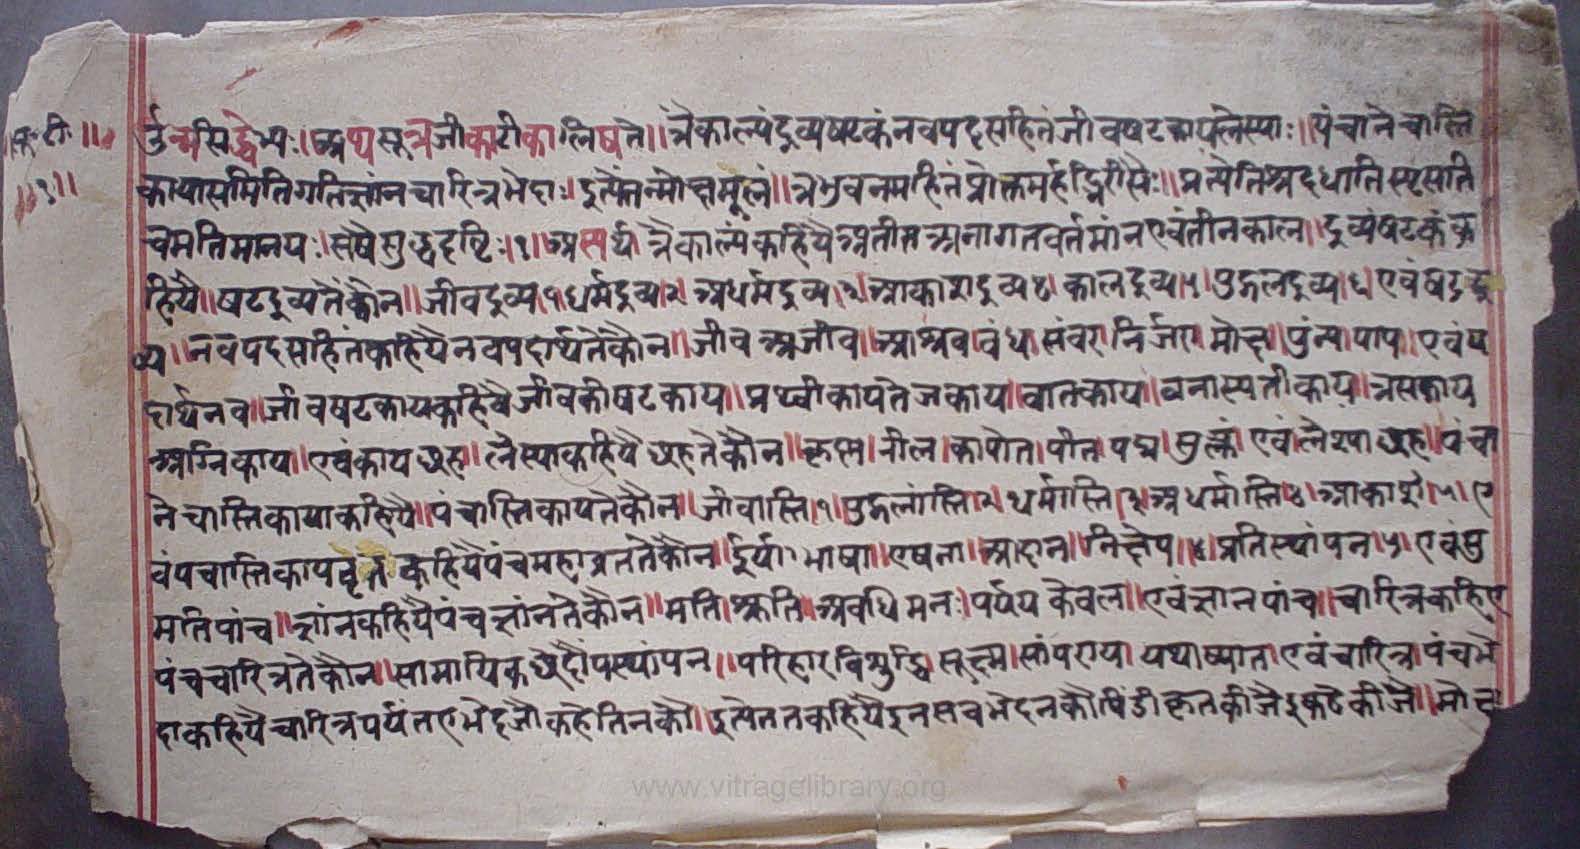 सू॰ टी॰ ॥
॥१॥
ॐनमसिद्धेभ्यः॥ अथ सूत्रजीका टीका लिषते॥ त्रैकाल्यं द्रव्यषटकं नवपद सहितं जीवषटकायलेस्याः॥ पंचानेचास्ति
काया समिति गति ज्ञांन चारित्रभेदाः॥ इत्येतन्मोक्षमूलं॥ त्रिभुवनमहितं प्रोक्तमर्हद्भिरीसैः॥ प्रत्येति श्रदधाति स्पृसति
चेमतिमानयः॥ सवै सुद्धदृष्टिः॥१॥ अस्यार्थ॥ त्रैकाल्यं कहियै अतीत अनागत वर्तमांन एवं तीनकाल॥ द्रव्यंषटकं क
हियै॥ षटद्रव्य तै कौन॥ जीवद्रव्य।१। धर्मद्रव्य।२। अधर्मद्रव्य।३। आकाशद्रव्य।४। कालद्रव्य।५। पुद्गलद्रव्य।६। एवं षटद्र
व्य॥ नवपदसहितं कहियै नवपदार्थ ते कौन॥ जीव अजीव॥ आश्रव। बंध। संवर। निर्जरा। मोक्ष। पुंन्य। पाप॥ एवं प
दार्थ नव॥ जीवषटकाय कहियै जीवकी षटकाय॥ प्रथ्वीकाय तेजकाय॥ वातकाय॥ वनास्पतीकाय॥ त्रसकाय
अग्निकाय॥ एवंकाय छह॥ लैस्या कहियै छह तै कौन॥ कृस्न। नील। कापोत। पीत। पद्म। सुक्लं। एवं लैश्या छह॥ पंचा
नेचास्तिकाया कहियै॥ पंचास्तिकाय तै कौन॥ जीवास्ति।१। पुद्गलास्ति।२। धर्मास्ति।३। अधर्मास्ति।४। आकाश।५। ए
वं पंचास्तिकाय कहियै पंचमहाव्रत तै कौन॥ ईर्या। भाषा॥ एषना॥ आदान॥ निक्षेप॥४॥ प्रतिस्थांपन।५। एवं सु
मति पांच॥ ज्ञांन कहियै पंचज्ञांन तै कौन॥ मति। श्रुति। अवधि मनः। पर्यय केवल॥ एवं ज्ञान पांच॥ चारित्र कहिए
पंचचारित्र तै कौन॥ सामायिक छेदौपस्थांपन॥ परिहारविशुद्धि सूक्ष्म। सांपराय। यथाष्यात। एवं चारित्र। पंचभे
दा कहियै चारित्रपर्यंत ए भेद जौ कहे तिनकौ॥ इत्येतत कहियै इन सब भेदनकौ पिंडीकृत कीजै इकटे कीजै॥ मोक्ष
www.vitragelibrary.org